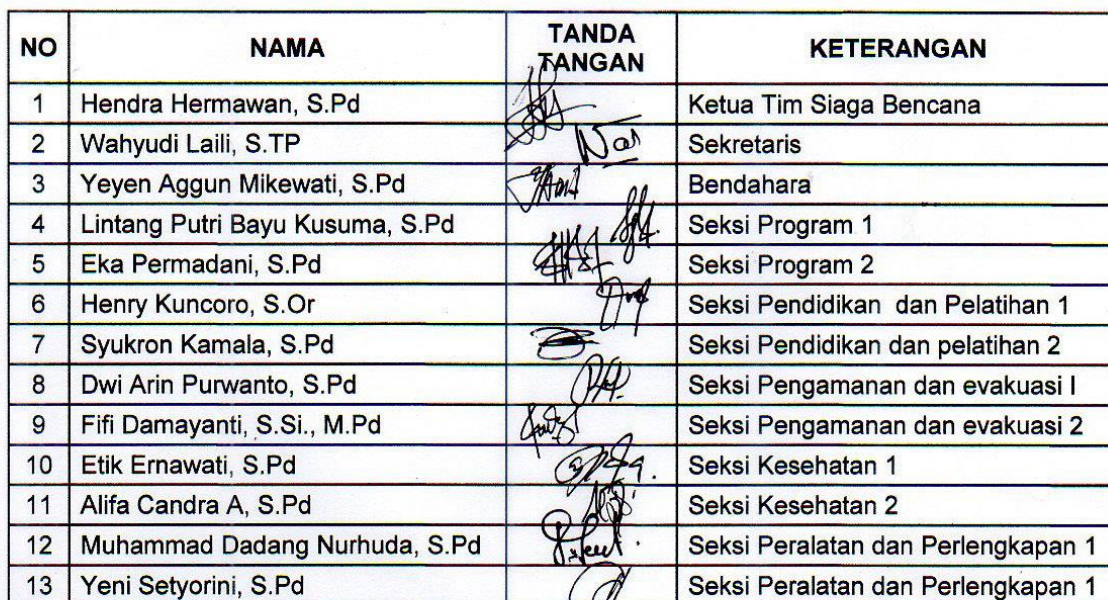 NO NAMA TANDA TANGAN KETERANGAN
1 Hendra Hermawan, S.Pd Ketua Tim Siaga Bencana
2 Wahyudi Laili, S.TP Sekretaris
3 Yeyen Aggun Mikewati, S.Pd Bendahara
4 Lintang Putri Bayu Kusuma, S.Pd Seksi Program 1
5 Eka Permadani, S.Pd Seksi Program 2
6 Henry Kuncoro, S.Or Seksi Pendidikan dan Pelatihan 1
7 Syukron Kamala, S.Pd Seksi Pendidikan dan pelatihan 2
8 Dwi Arin Purwanto, S.Pd Seksi Pengamanan dan evakuasi I
9 Fifi Damayanti, S.Si., M.Pd Seksi Pengamanan dan evakuasi 2
10 Etik Ernawati, S.Pd Seksi Kesehatan 1
11 Alifa Candra A, S.Pd Seksi Kesehatan 2
12 Muhammad Dadang Nurhuda, S.Pd Seksi Peralatan dan Perlengkapan 1
13 Yeni Setyorini, S.Pd Seksi Peralatan dan Perlengkapan 1